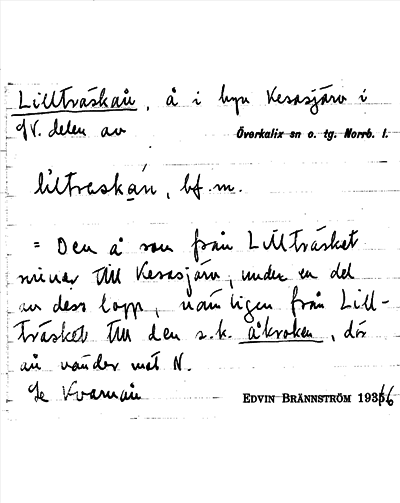 Lillträskån, å i byn Kesasjärv i
NV. delen av Överkalix sn o. tg. Norrb. l.
liltraskán, bf. m.
= Den å som från Lillträsket
rinner till Kesasjärv, under en del
av dess lopp, nämligen från Lill-
träsket till den s.k. åkroken, där
ån vänder mot N.
Se Kvarnån
EDVIN BRÄNNSTRÖM 1936